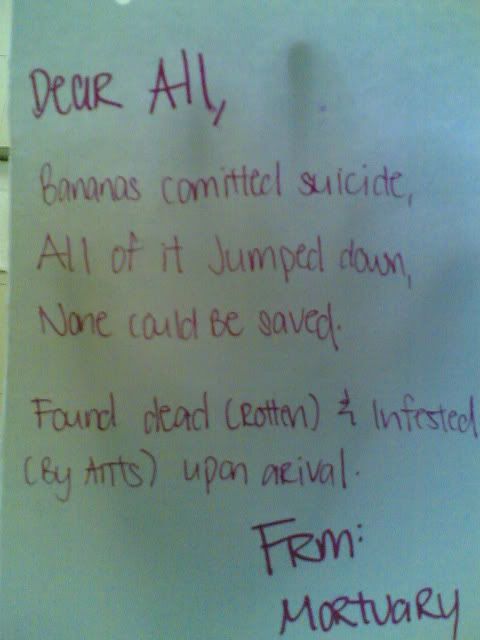 Dear All,
Bananas comitted suicide,
All of it Jumped down,
None could Be saved.
Found dead (Rotten) & Infested
(By Ants) upon arival.
FRM:
MORTUARY